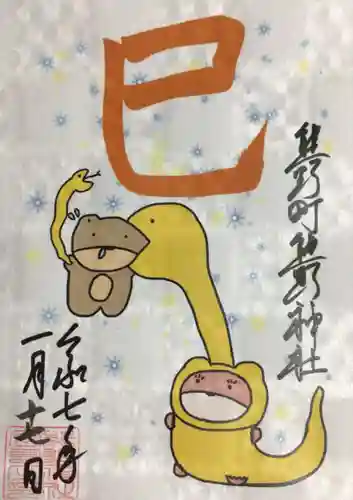 巳
熊野町熊野神社
令和七年
一月十七日